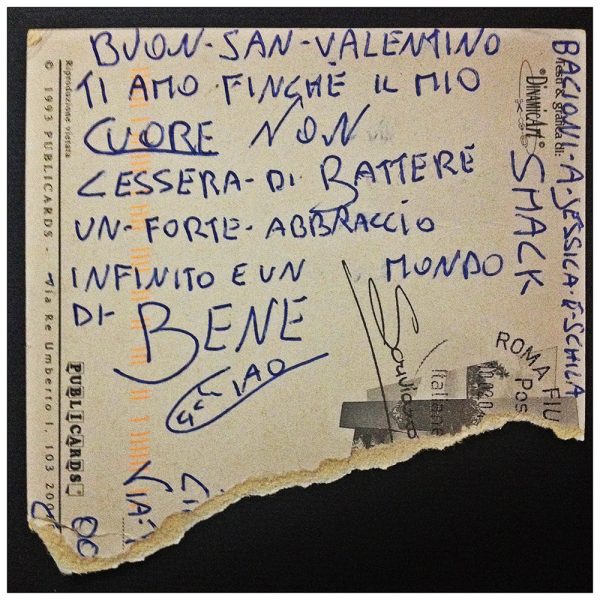 BUON-SAN-VALENTINO
TI AMO FINCHÈ IL MIO
CUORE NON
CESSERA-DI BATTERE
UN-FORTE-ABBRACCIO
INFINITO E UN MONDO
DI-BENE
CIAO
BACIONI-A-JESSICA-E-SCHILA
SMACK
testi & grafica di:
©DINAMICART
Riproduzione vietata
© 1993 PUBLICARDS - Via Re Umberto I, 103
PUBLICARDS
ROMA FIU
Pos
Italiane
VIA: